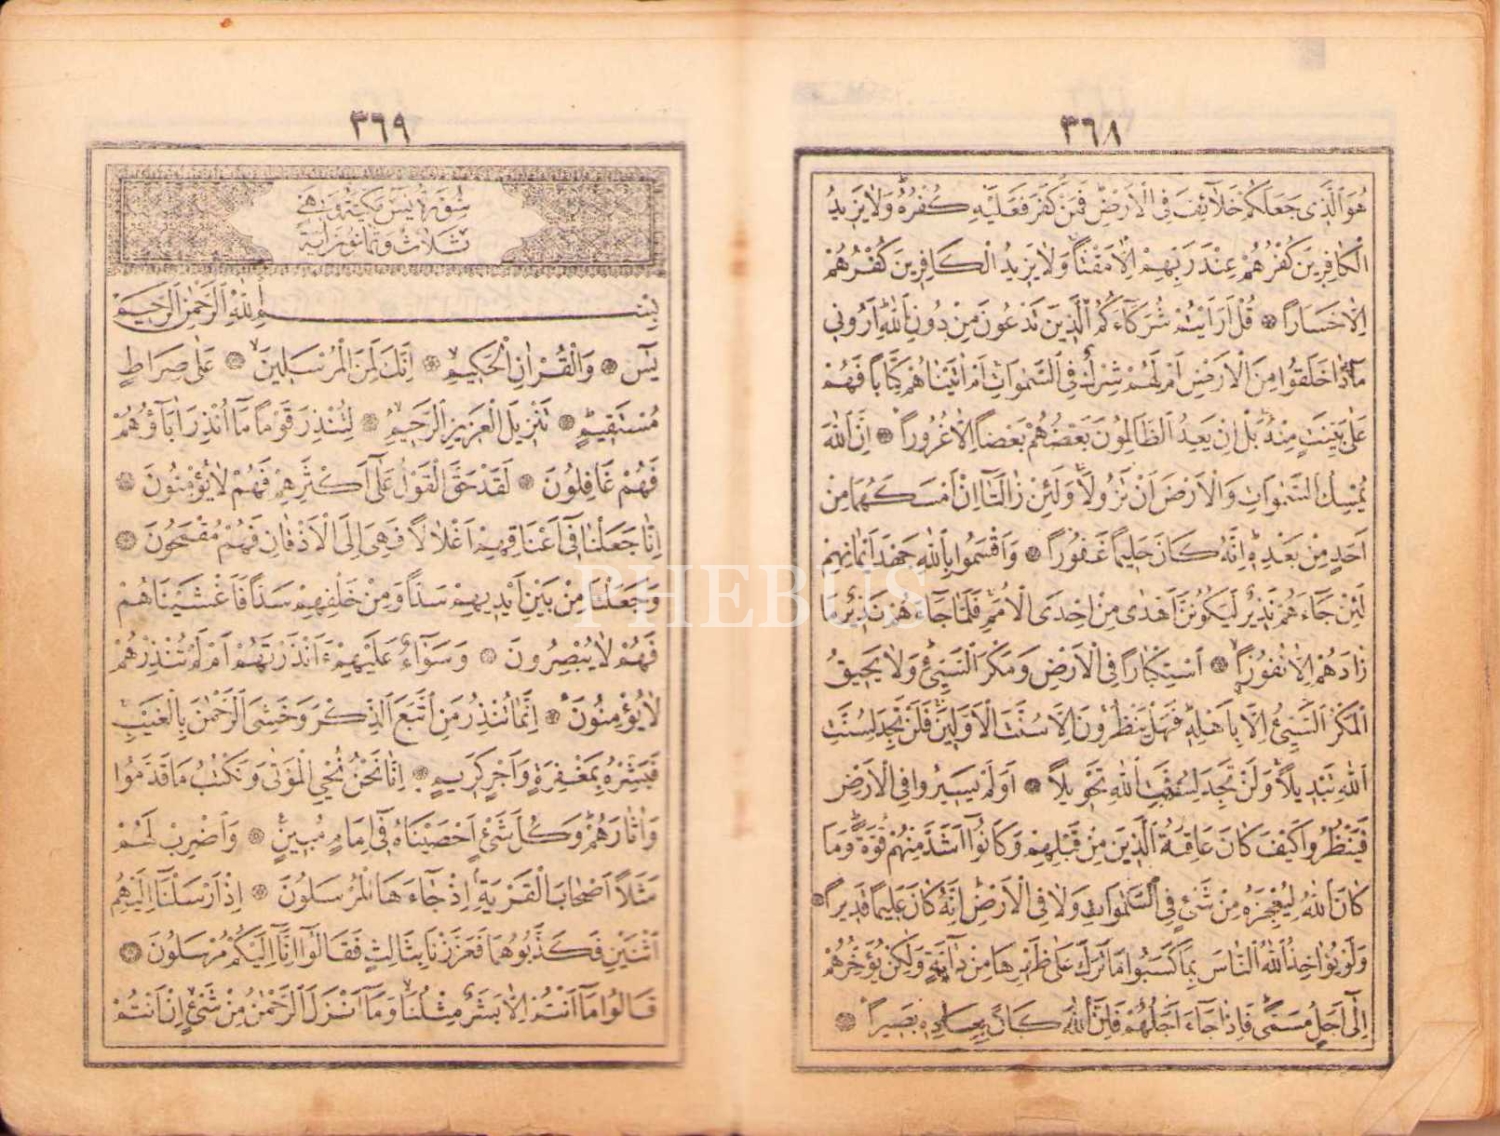 ٣٦٨
هُوَ الَّذِي جَعَلَكُمْ خَلَائِفَ فِي الْاَرْضِ فَمَنْ كَفَرَ فَعَلَيْهِ كُفْرُهُ وَلَا يَزِيدُ
الْكَافِرِينَ كُفْرُهُمْ عِنْدَ رَبِّهِمْ اِلَّا مَقْتًا وَلَا يَزِيدُ الْكَافِرِينَ كُفْرُهُمْ
اِلَّا خَسَارًا ۞ قُلْ اَرَاَيْتُمْ شُرَكَآءَكُمُ الَّذِينَ تَدْعُونَ مِنْ دُونِ اللّٰهِ اَرُونِي
مَاذَا خَلَقُوا مِنَ الْاَرْضِ اَمْ لَهُمْ شِرْكٌ فِي السَّمٰوَاتِ اَمْ اٰتَيْنَاهُمْ كِتَابًا فَهُمْ
عَلٰى بَيِّنَتٍ مِنْهُ بَلْ اِنْ يَعِدُ الظَّالِمُونَ بَعْضُهُمْ بَعْضًا اِلَّا غُرُورًا ۞ اِنَّ اللّٰهَ
يُمْسِكُ السَّمٰوَاتِ وَالْاَرْضَ اَنْ تَزُولَا وَلَئِنْ زَالَتَآ اِنْ اَمْسَكَهُمَا مِنْ
اَحَدٍ مِنْ بَعْدِهِ اِنَّهُ كَانَ حَلِيمًا غَفُورًا ۞ وَاَقْسَمُوا بِاللّٰهِ جَهْدَ اَيْمَانِهِمْ
لَئِنْ جَآءَهُمْ نَذِيرٌ لَيَكُونُنَّ اَهْدٰى مِنْ اِحْدَى الْاُمَمِ فَلَمَّا جَآءَهُمْ نَذِيرٌ مَا
زَادَهُمْ اِلَّا نُفُورًا ۞ اسْتِكْبَارًا فِي الْاَرْضِ وَمَكْرَ السَّيِّئِ وَلَا يَحِيقُ
الْمَكْرُ السَّيِّئُ اِلَّا بِاَهْلِهِ فَهَلْ يَنْظُرُونَ اِلَّا سُنَّتَ الْاَوَّلِينَ فَلَنْ تَجِدَ لِسُنَّتِ
اللّٰهِ تَبْدِيلًا وَلَنْ تَجِدَ لِسُنَّتِ اللّٰهِ تَحْوِيلًا ۞ اَوَلَمْ يَسِيرُوا فِي الْاَرْضِ
فَيَنْظُرُوا كَيْفَ كَانَ عَاقِبَةُ الَّذِينَ مِنْ قَبْلِهِمْ وَكَانُوا اَشَدَّ مِنْهُمْ قُوَّةً وَمَا
كَانَ اللّٰهُ لِيُعْجِزَهُ مِنْ شَيْءٍ فِي السَّمٰوَاتِ وَلَا فِي الْاَرْضِ اِنَّهُ كَانَ عَلِيمًا قَدِيرًا ۞
وَلَوْ يُؤَاخِذُ اللّٰهُ النَّاسَ بِمَا كَسَبُوا مَا تَرَكَ عَلٰى ظَهْرِهَا مِنْ دَآبَّةٍ وَلٰكِنْ يُؤَخِّرُهُمْ
اِلٰٓى اَجَلٍ مُسَمًّى فَاِذَا جَآءَ اَجَلُهُمْ فَاِنَّ اللّٰهَ كَانَ بِعِبَادِهِ بَصِيرًا ۞
٣٦٩
سُورَةُ يٰسٓ مَكِّيَّةٌ وَهِيَ
ثَلَاثٌ وَثَمَانُونَ اٰيَةً
بِسْمِ اللّٰهِ الرَّحْمٰنِ الرَّحِيمِ
يٰسٓ ۞ وَالْقُرْاٰنِ الْحَكِيمِ ۞ اِنَّكَ لَمِنَ الْمُرْسَلِينَ ۞ عَلٰى صِرَاطٍ
مُسْتَقِيمٍ ۞ تَنْزِيلَ الْعَزِيزِ الرَّحِيمِ ۞ لِتُنْذِرَ قَوْمًا مَآ اُنْذِرَ اٰبَآؤُهُمْ
فَهُمْ غَافِلُونَ ۞ لَقَدْ حَقَّ الْقَوْلُ عَلٰٓى اَكْثَرِهِمْ فَهُمْ لَا يُؤْمِنُونَ ۞
اِنَّا جَعَلْنَا فِٓي اَعْنَاقِهِمْ اَغْلَالًا فَهِيَ اِلَى الْاَذْقَانِ فَهُمْ مُقْمَحُونَ ۞
وَجَعَلْنَا مِنْ بَيْنِ اَيْدِيهِمْ سَدًّا وَمِنْ خَلْفِهِمْ سَدًّا فَاَغْشَيْنَاهُمْ
فَهُمْ لَا يُبْصِرُونَ ۞ وَسَوَآءٌ عَلَيْهِمْ ءَاَنْذَرْتَهُمْ اَمْ لَمْ تُنْذِرْهُمْ
لَا يُؤْمِنُونَ ۞ اِنَّمَا تُنْذِرُ مَنِ اتَّبَعَ الذِّكْرَ وَخَشِيَ الرَّحْمٰنَ بِالْغَيْبِ
فَبَشِّرْهُ بِمَغْفِرَةٍ وَاَجْرٍ كَرِيمٍ ۞ اِنَّا نَحْنُ نُحْيِ الْمَوْتٰى وَنَكْتُبُ مَا قَدَّمُوا
وَاٰثَارَهُمْ وَكُلَّ شَيْءٍ اَحْصَيْنَاهُ فِٓي اِمَامٍ مُبِينٍ ۞ وَاضْرِبْ لَهُمْ
مَثَلًا اَصْحَابَ الْقَرْيَةِ اِذْ جَآءَهَا الْمُرْسَلُونَ ۞ اِذْ اَرْسَلْنَآ اِلَيْهِمُ
اثْنَيْنِ فَكَذَّبُوهُمَا فَعَزَّزْنَا بِثَالِثٍ فَقَالُٓوا اِنَّآ اِلَيْكُمْ مُرْسَلُونَ ۞
قَالُوا مَآ اَنْتُمْ اِلَّا بَشَرٌ مِثْلُنَا وَمَآ اَنْزَلَ الرَّحْمٰنُ مِنْ شَيْءٍ اِنْ اَنْتُمْ
PHEBUS